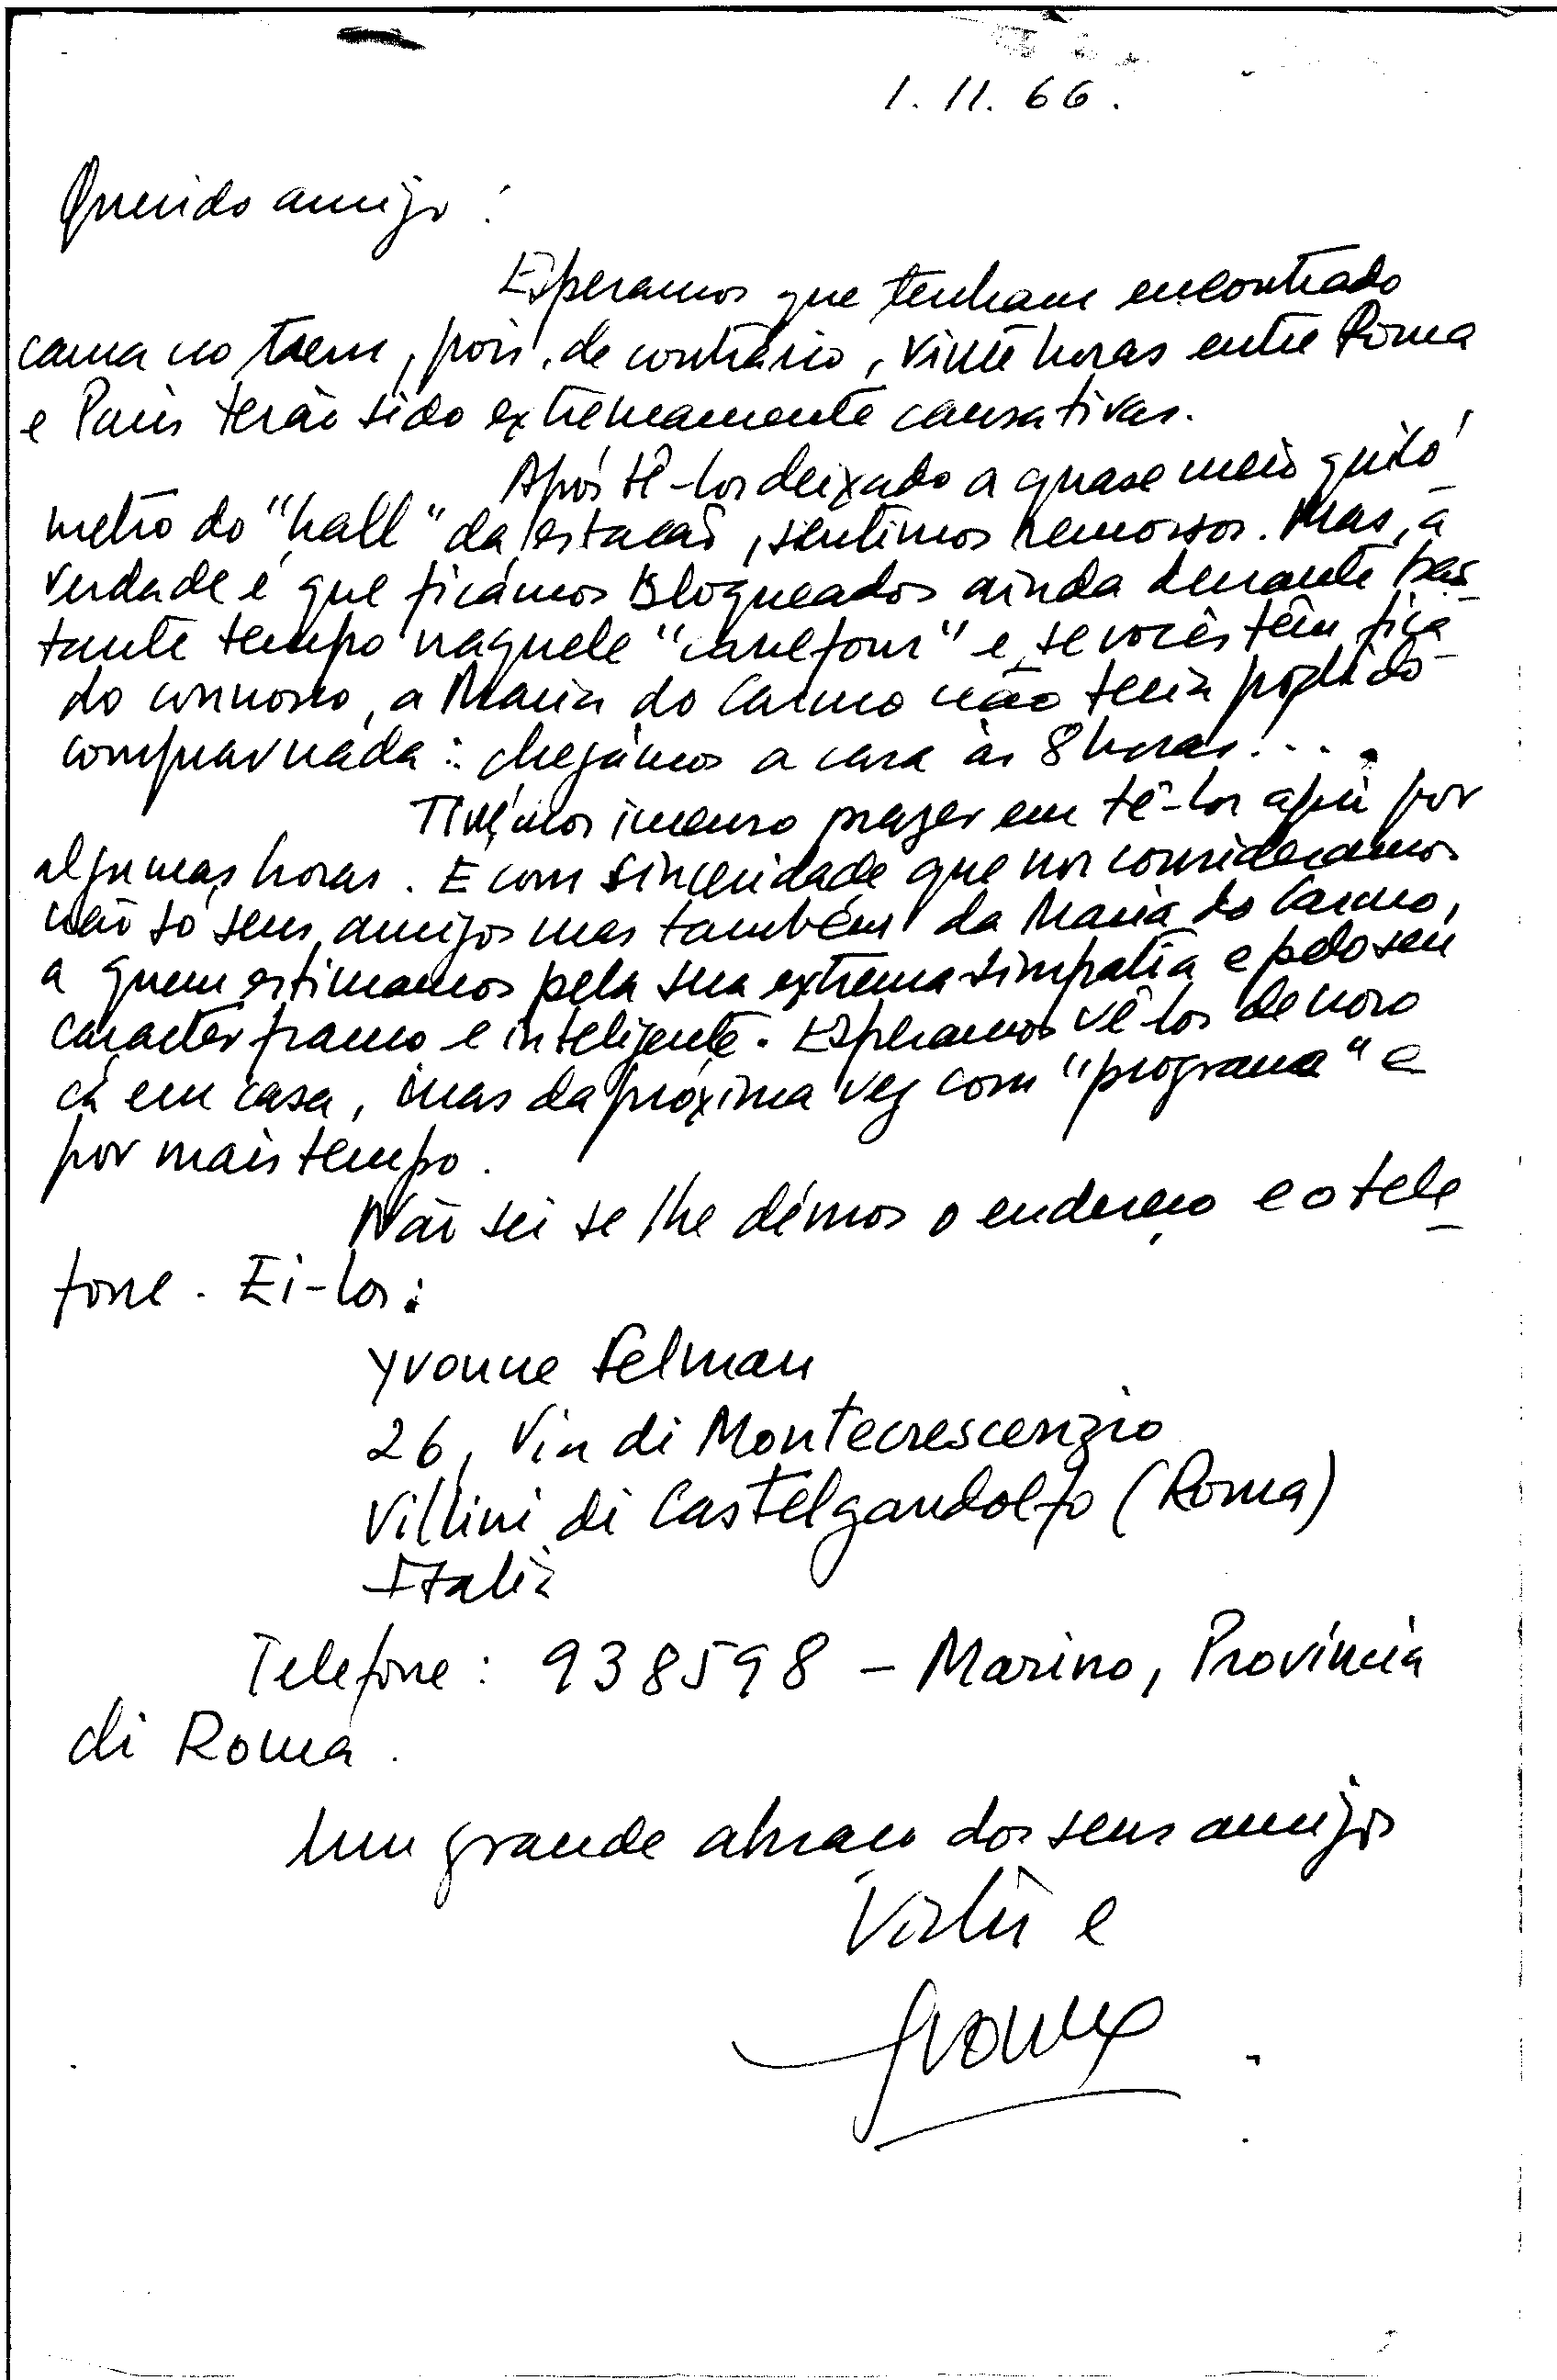 1.11.66.
Querido amigo:
Esperamos que tenham encontrado
cama no trem, pois, de contrário, vinte horas entre Roma
e Paris terão sido extremamente cansativas.
Após tê-los deixado a quase meio quiló
metro do "hall" da estacão, sentimos remorsos. Mas, a
verdade é que ficámos bloqueados ainda durante bas
tante tempo naquele "carrefour" e, se vocês têm fica
do connosco, a Maria do Carmo não teria podido
comprar nada: chegámos a casa às 8 horas!...
Tivémos imenso prazer em tê-los aqui por
algumas horas. E com sinceridade que nos consideramos
não só seus amigos mas também da Maria do Carmo,
a quem estimamos pela sua extrema simpatia e pelo seu
caracter franco e inteligente. Esperamos vê-los de novo
cá em casa, mas da próxima vez com "programa" e
por mais tempo.
Não sei se lhe démos o endereço e o tele
fone. Ei-los:
Yvonne Felman
26, Via di Montecrescenzio
Villini di Castelgandolfo (Roma)
Italia
Telefone: 938598 - Marino, Provincia
di Roma.
Um grande abraço dos seus amigos
e
Yvonne